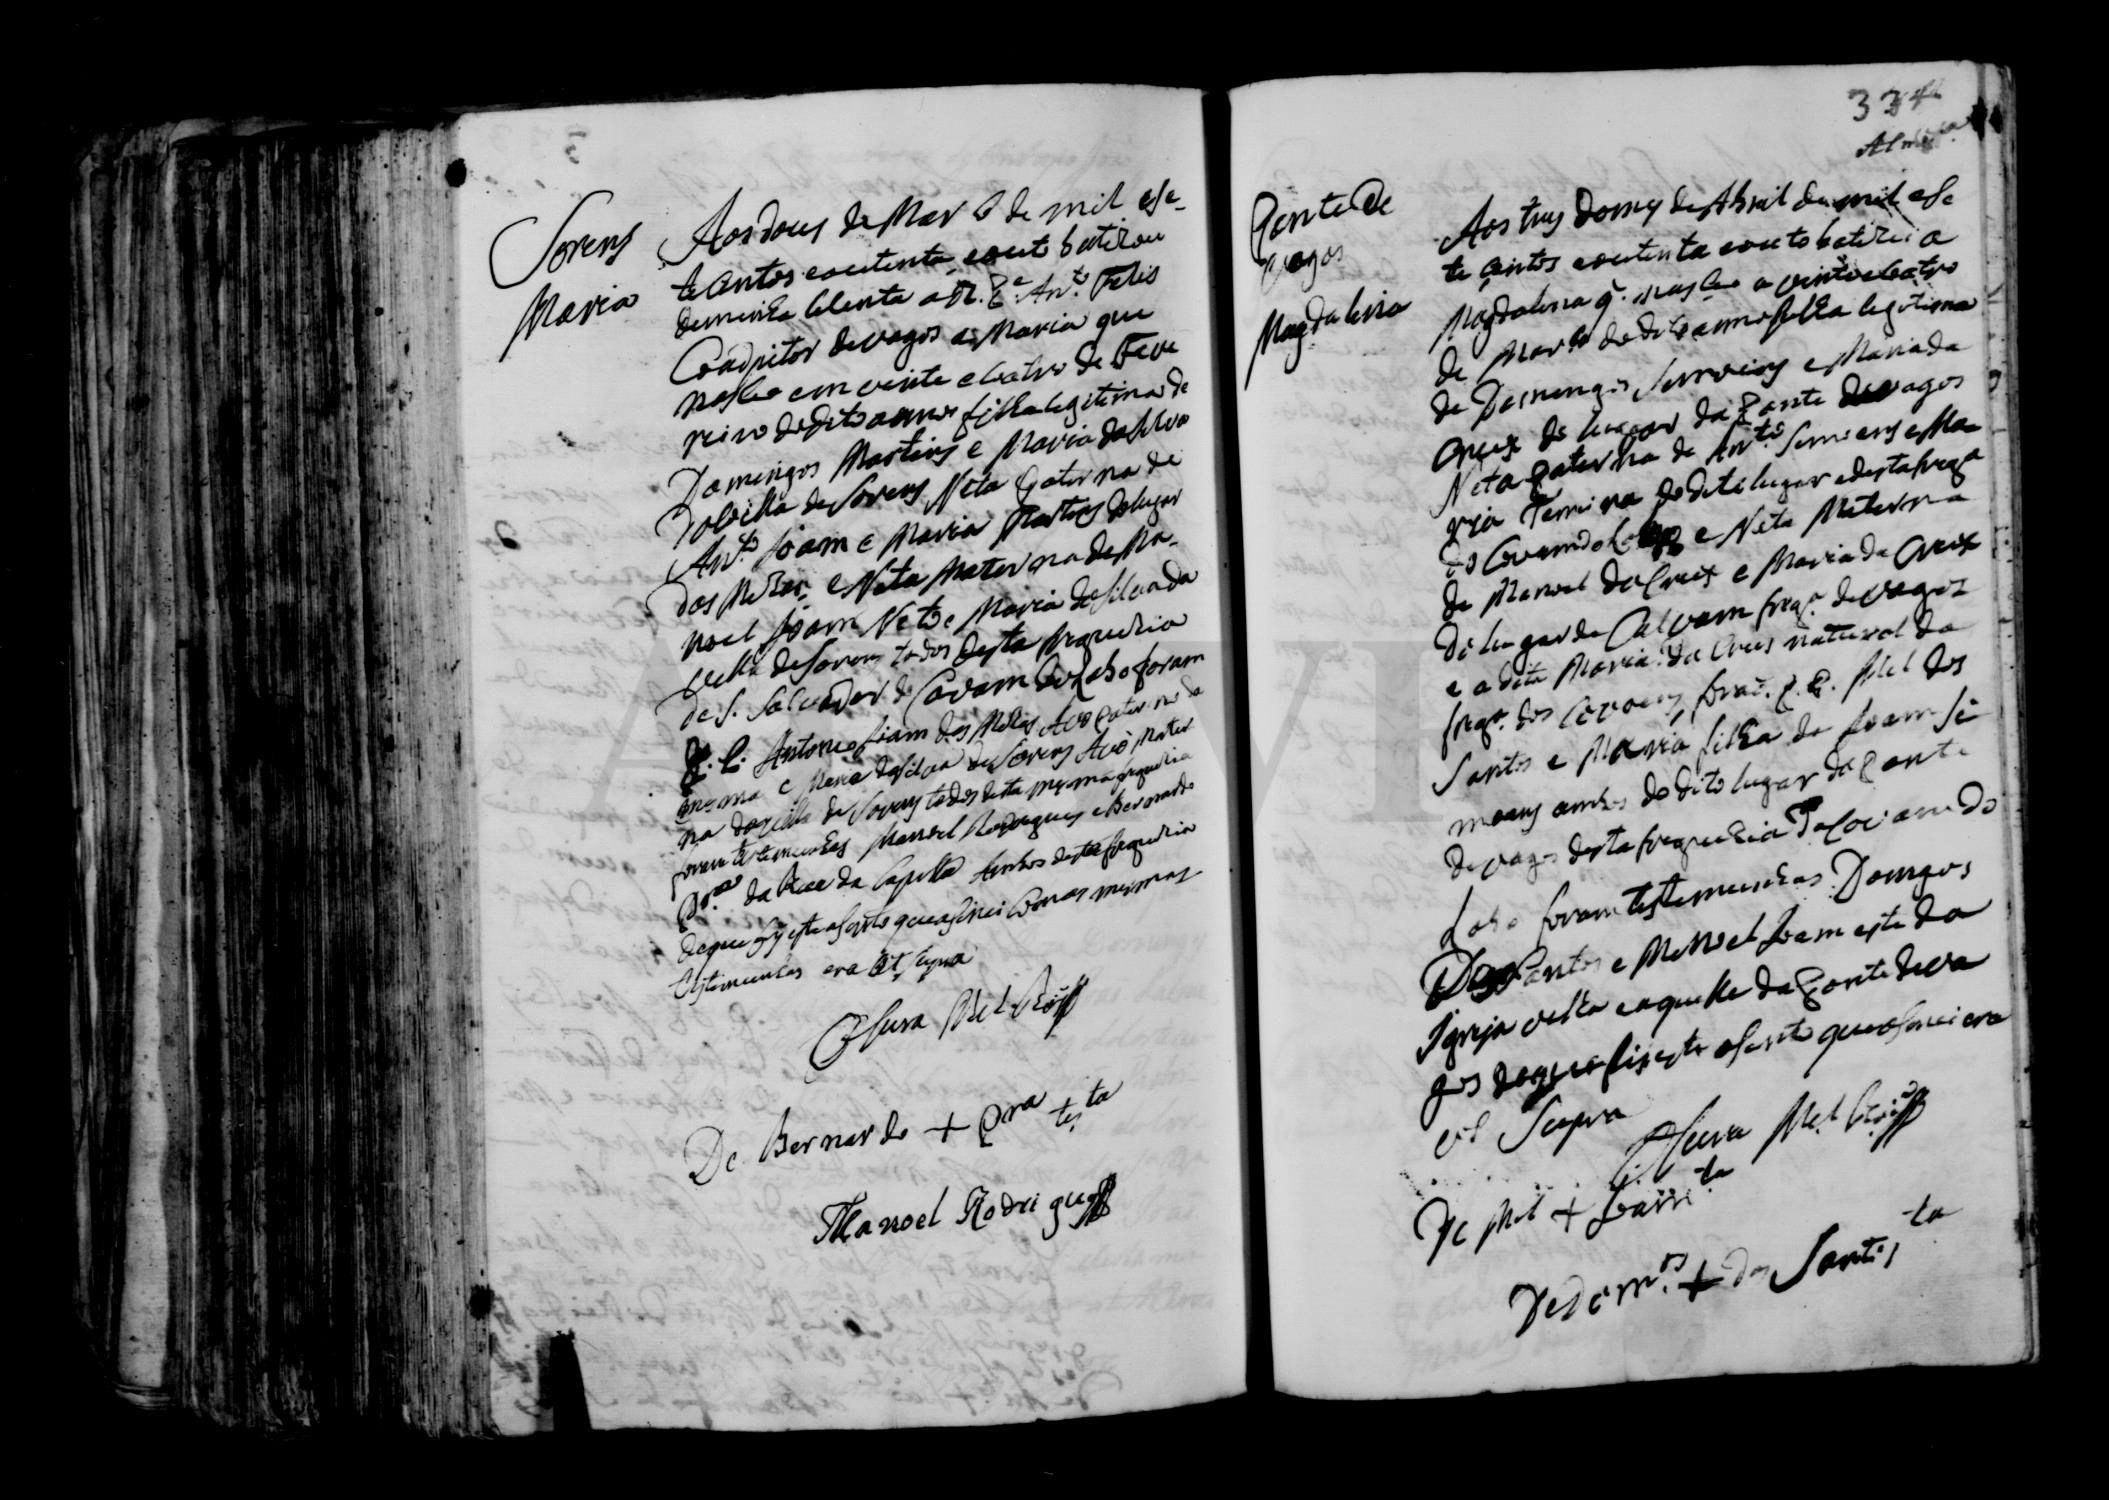 Sorens
Maria
Aos dous de Março de mil e se-
te centos e outenta e outo batizou
de minha licenta o R. Pe. Anto. Felis
Coadjutor de vagos a Maria que
nasceo em vinte e coatro de Feve
reiro do dito anno filha legitima de
Domingos Martins e Maria da Silva
da villa de Sorens Neta Paterna de
Anto. Joam e Maria Martins do lugar
das Mesas, e Neta Materna de Ma-
noel Joam Neto e Maria da Silva da
villa de Sorens todos desta freguezia
de S. Salvador de Covam do Lobo foram
P. P. Antonio Joam das Mesas Avo Paterno da
mesma e Maria da Silva de Sorens Avó Mater
na da villa de Sorens todos desta mesma freguezia
foram testemunhas Manoel Rodrigues e Bernardo
Pra. da Rua da Capella Ambos desta freguezia
de que fis este asento que asinei com as mesmas
testemunhas era ut supra
O Cura Mel Roiz
De Bernardo + Pra tes.ta
Manoel Rodrigues
334
Almeida
Ponte de
vagos
Magdalena
Aos tres do mes de Abril de mil e se
te centos e outenta e outo batizei a
Magdalena q. nasceo a vinte e coatro
de Março do dito anno filha legitima
de Domingos Simoens e Maria da
Crux do lugar da Ponte de vagos
Neta Paterna de Anto. Simoens e Ma-
ria do dito lugar e desta frega
do Covam do Lobo e Neta Materna
de Manoel da Crux e Maria da Crux
do lugar de Calvam frega. de vagos
e a dita Maria da Crus natural da
frega. dos Covoens, foraõ P. P. Mel dos
Santos e Maria filha de Joam Si
moens ambos do dito lugar da Ponte
de vagos desta freguezia do Covam do
Lobo foram testemunhas Domingos
dos Santos e Manoel Joam este da
Igreja velha e aquelle da Ponte de va
gos de que fis este asento que asinei era
ut Supra
O Cura Mel Roiz
De Mel + Joam ta
De Domos. + dos Santos ta